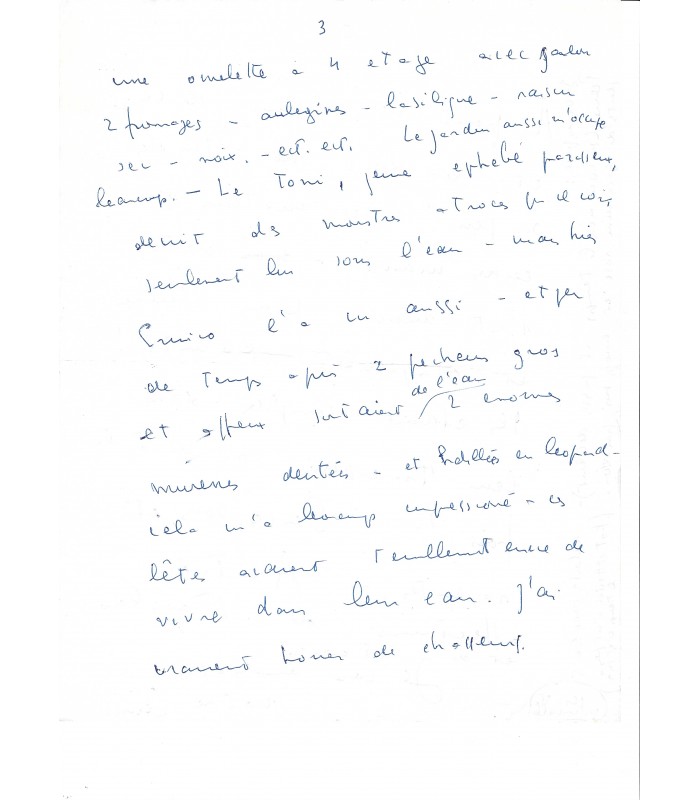 3
une omelette à 4 etage avec jambon
2 fromages - aubegines - basilique - raisin
sec - noix. - ect. ect. Le jardin aussi m'occupe
beaucoup. - Le Toni, jeune ephebe paresseux,
decrit des monstres atroces qu'il voit
seulement lui sous l'eau - mais hier
Enrico l'a vu aussi - et peu
de temps après 2 pecheurs gros
et affreux sortaient de l'eau 2 enormes
murènes dentées - et habillées en leopard -
cela m'a beaucoup impressioné - ces
bêtes avaient tellement envie de
vivre dans leur eau. J'ai
vraiment horreur de chasseurs.